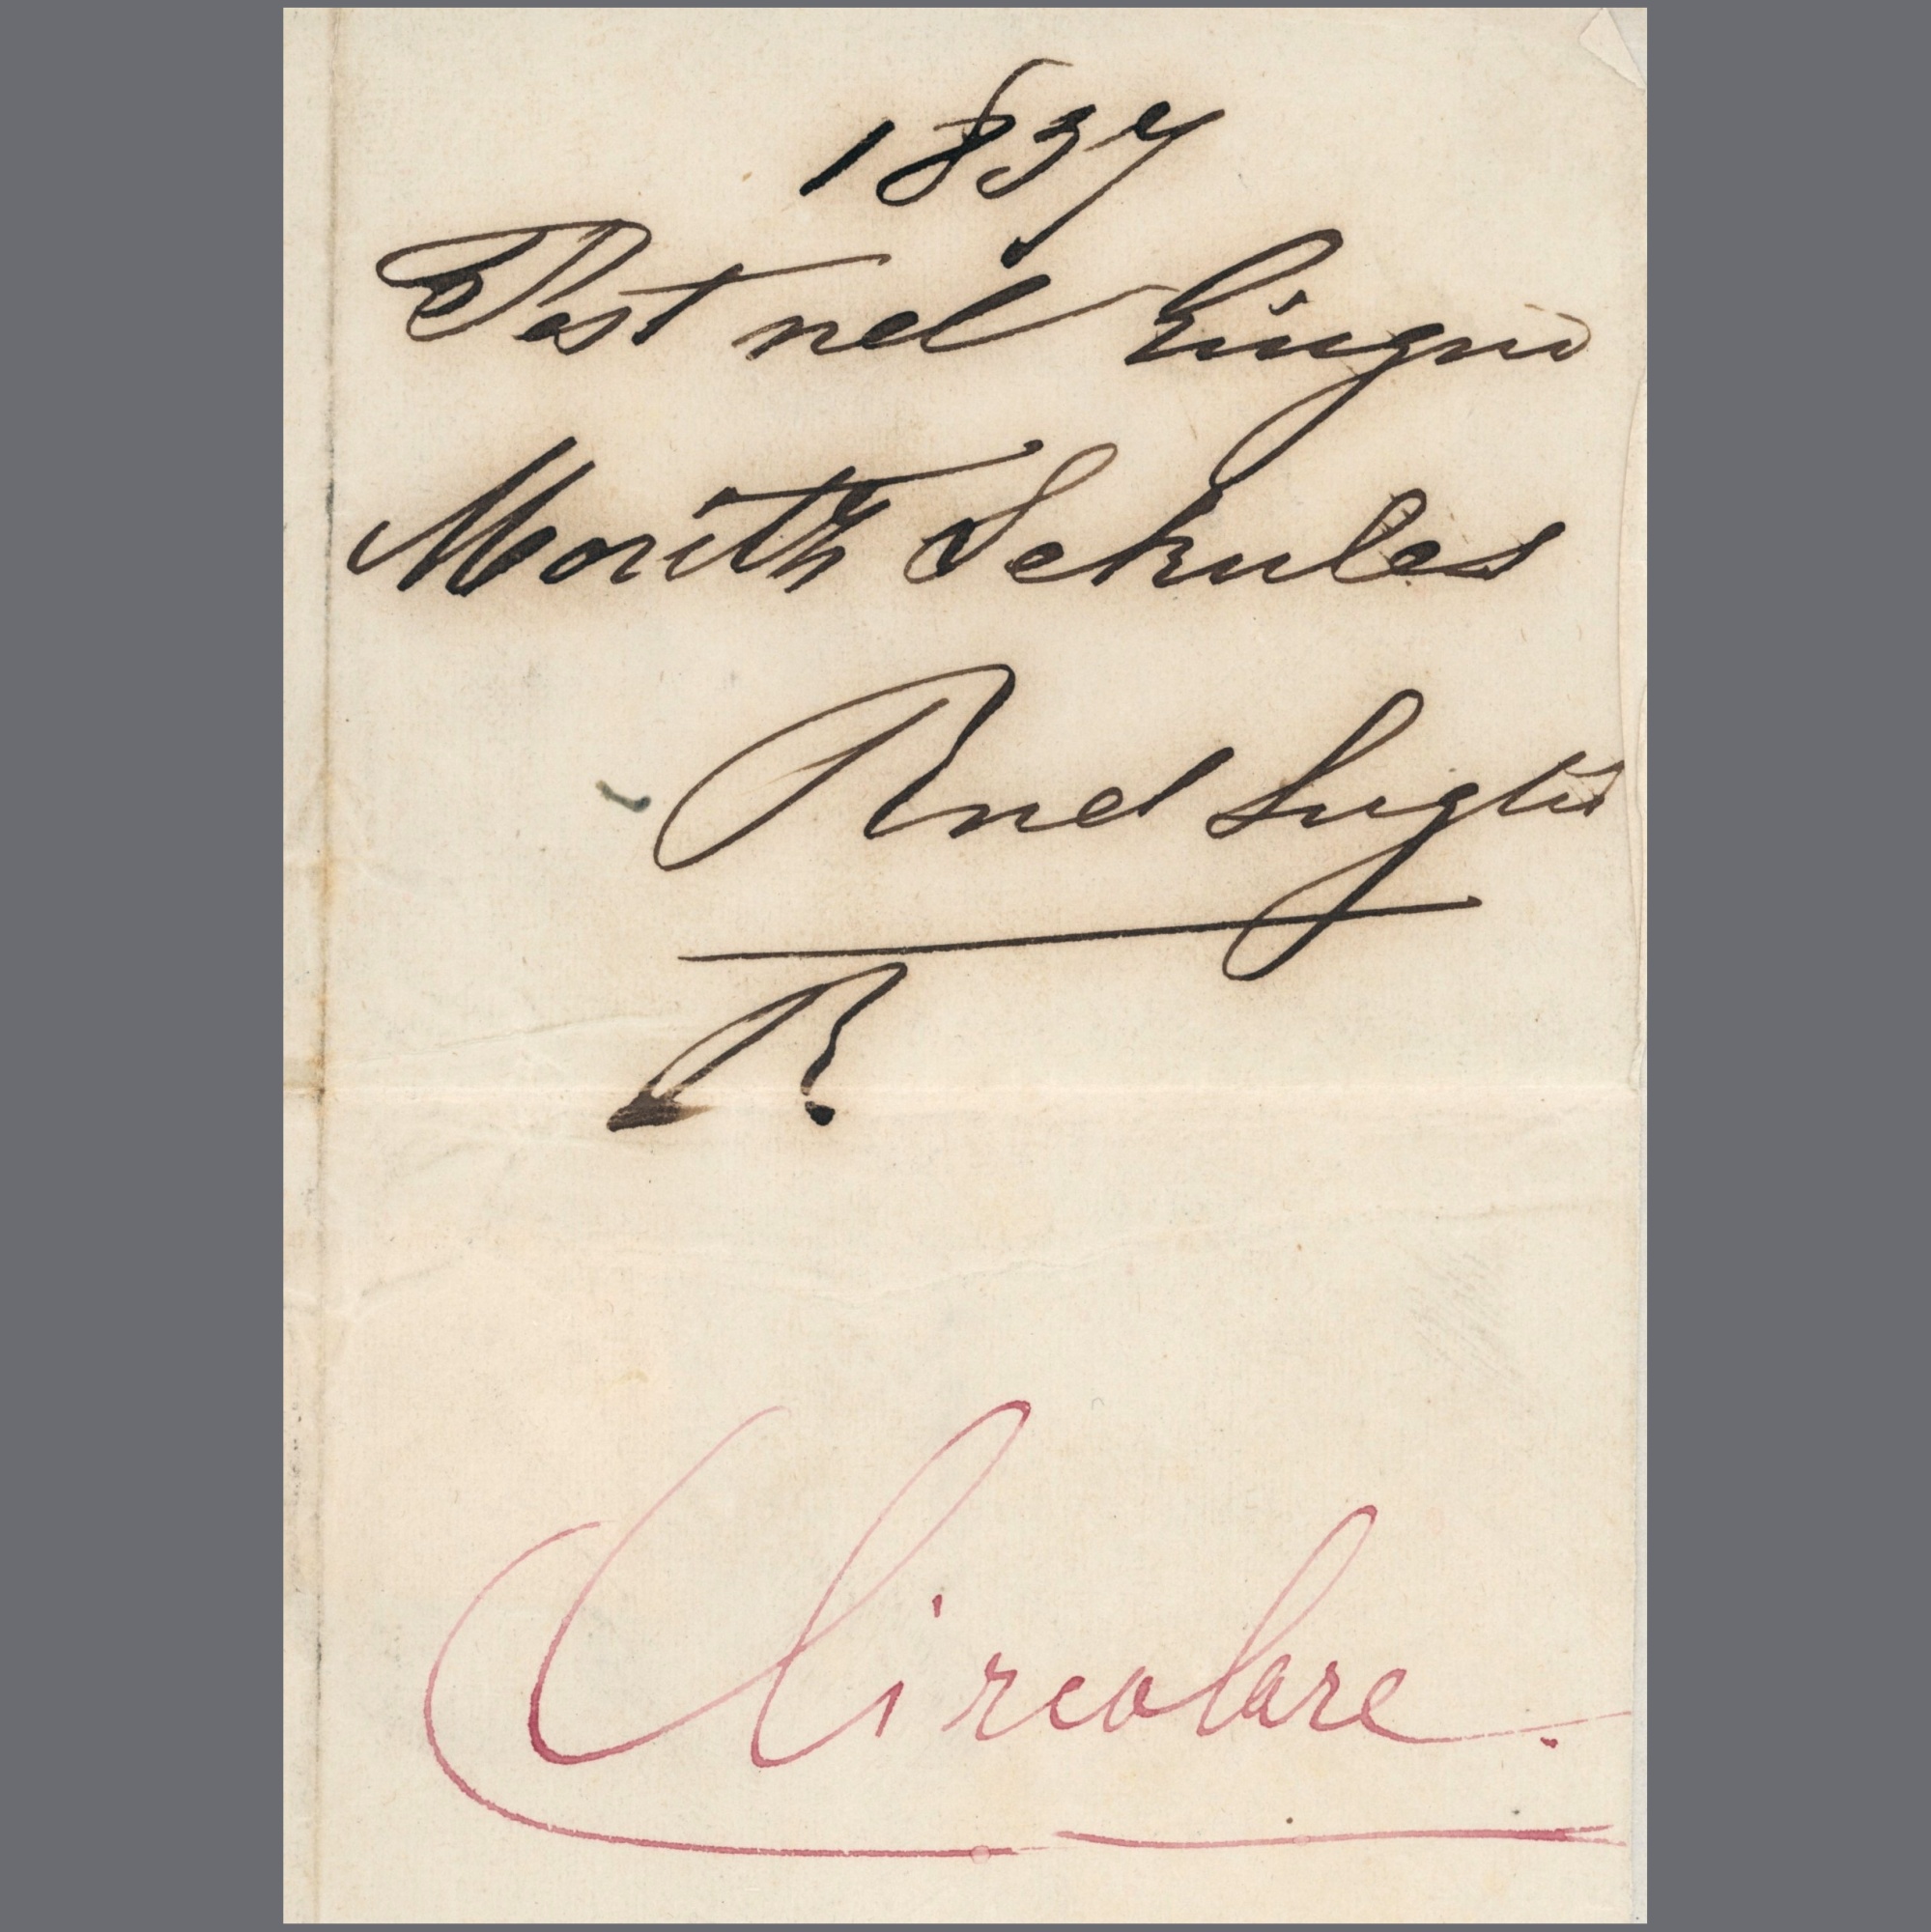 1837
Pest nel Giugno
Morith Schules
R nel Luglio
R.
Circolare.